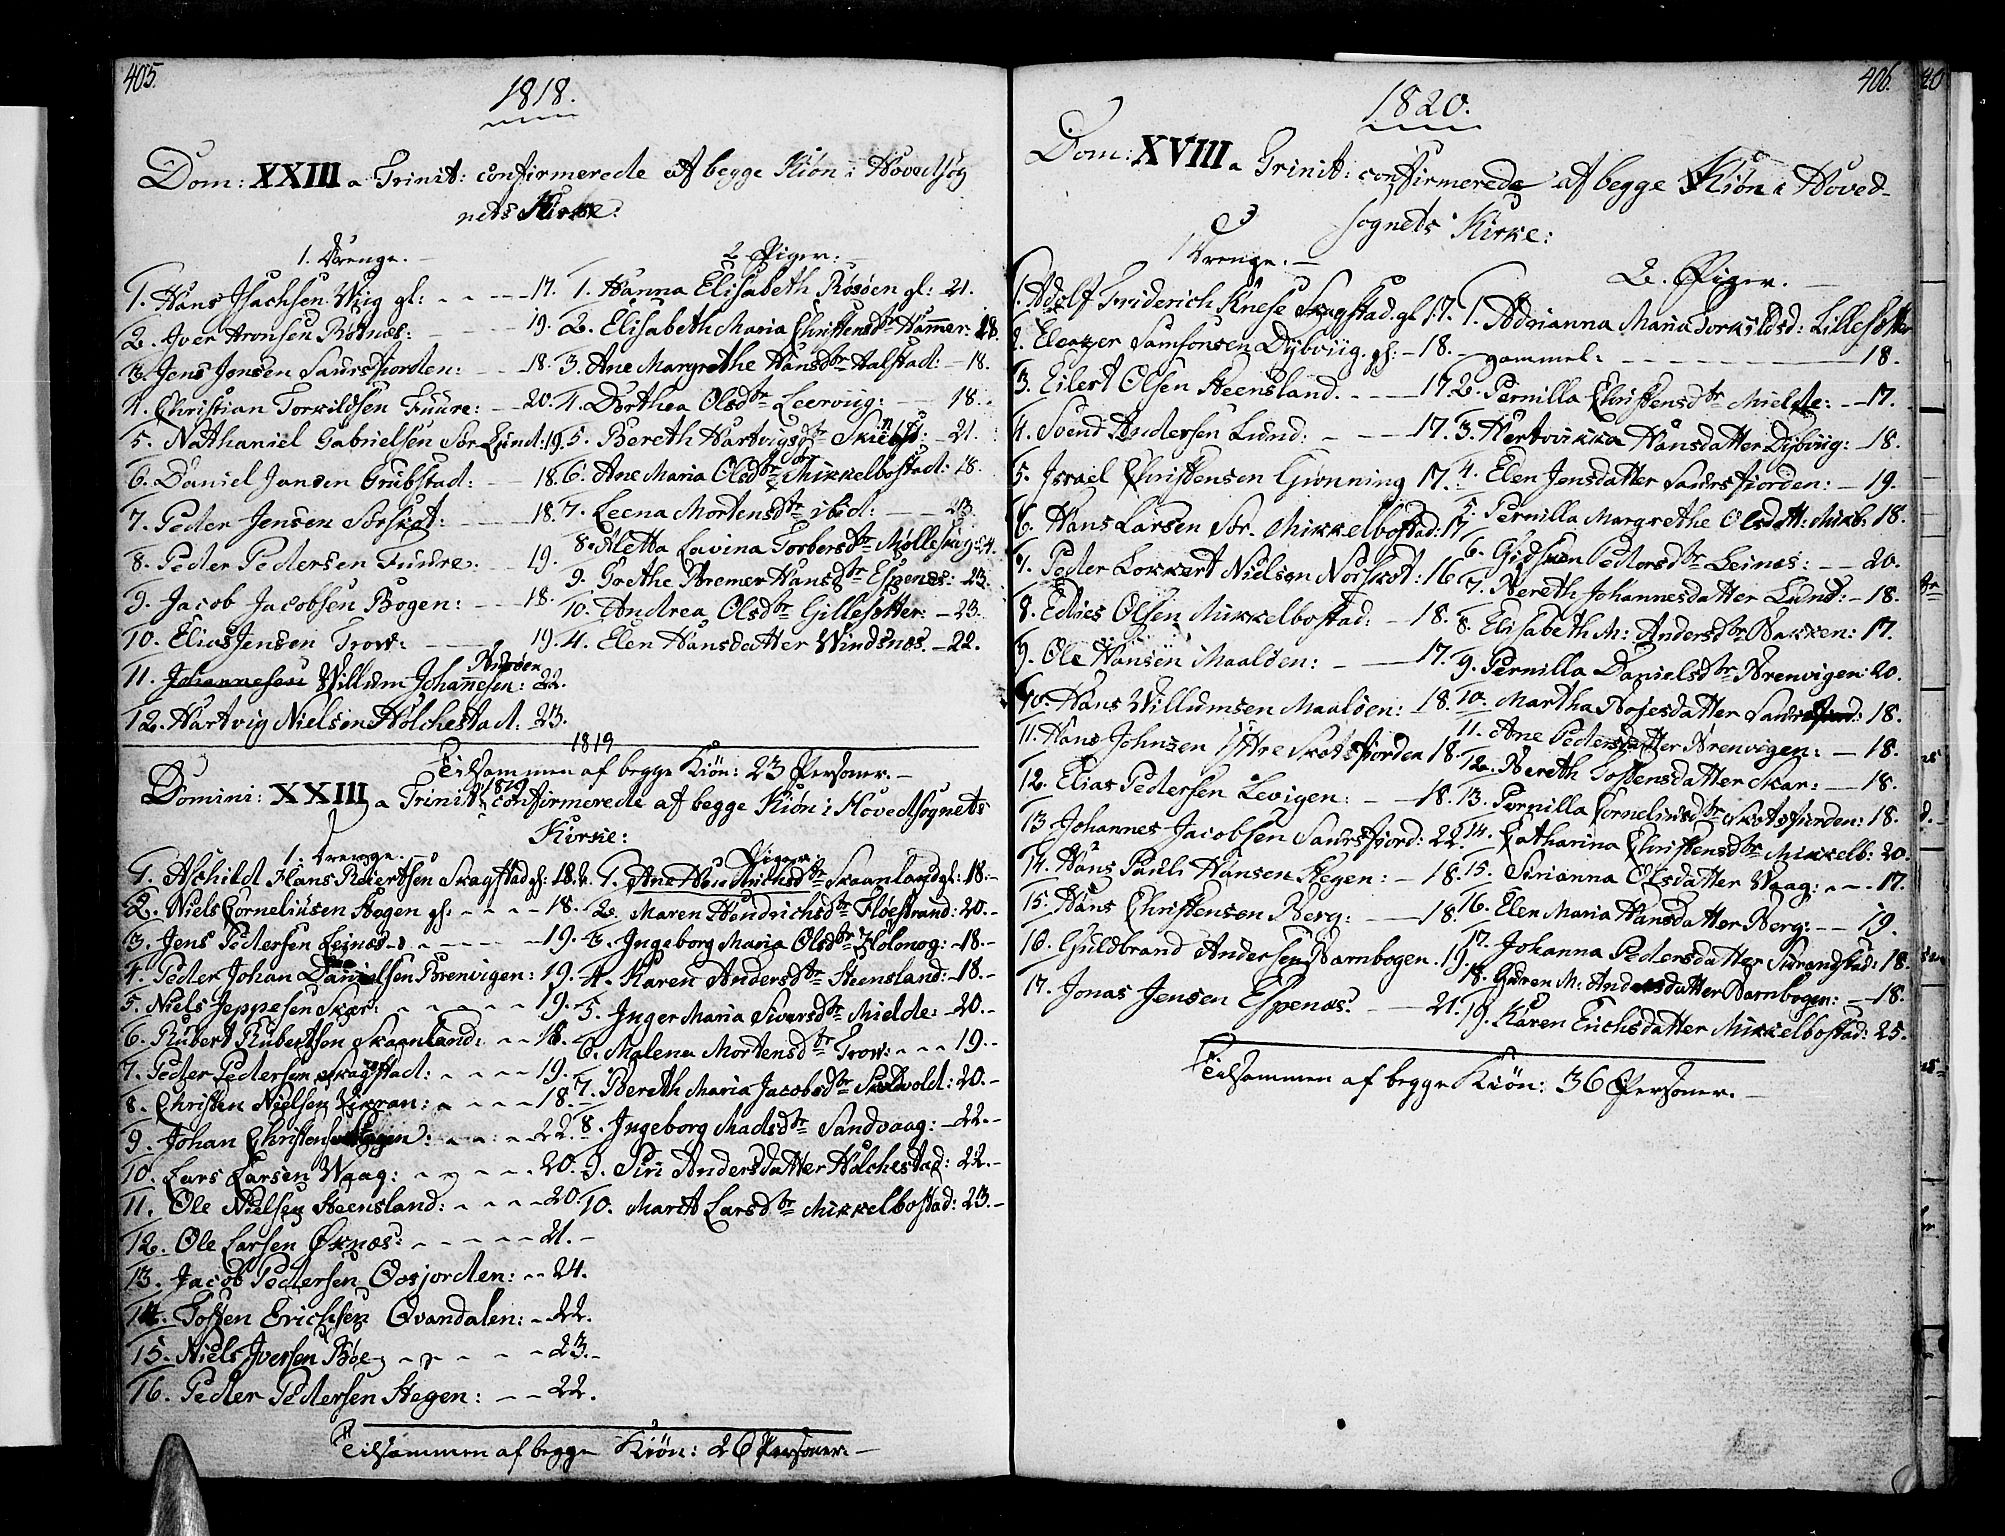 405.
1818.
Dom: XXIII a Trinit: confirmerede af begge Kiøn i Hovedsog
nets Kirke:
1. Drenge. -
1. Hans Isachsen Wiig gl: 17.
2. Iver Aronsen Rødnæs: 19.
3. Jens Jonsen Saursfiorden: 18.
4. Christian Torkildsen Fuure: 20.
5. Nathaniel Gabrielsen Sør Lund: 19.
6. Daniel Jansen Grubstad: 18.
7. Peder Jensen Sørskot: 18.
8. Peder Pedersen Fuure. 19.
9. Jacob Jacobsen Bogen: 18.
10. Elias Jensen Trow: 19.
11. Johannesen Willum Johannesen: 22.
12. Hartvig Nielsen Holchestad: 23.
2. Piger:
1. Hanna Elisabeth Røsøen gl: 21.
2. Elisabeth Maria Christensdtr Hammer: 18.
3. Ane Margrethe Hansdtr Halstad: 18.
4. Dorthea Olsdtr Leervug: 18.
5. Bereth Hartvigsdtr 21.
6. Ane Maria Olsdtr Mikkelbostad: 18.
7. Leena Mortensdtr ibid: 23.
8. Aletta Lavina Torbersdtr
9. Grethe Bremer Hansdtr Espenes: 23.
10. Andrea Olsdtr Gillesetter: 23.
4. Elen Hansdatter Windsnæs. 22.
Tilsammen af begge Kiøn: 23 Personer. -
1819
Domini: XXIII a Trinit: 1819 confirmerede af begge Kiøn i Hovedsognets
Kirke:
1. Drenge.
1. Aschild Hans Reiertsen Skagstad gl: 18.
2. Niels Cornelius​en Hegen gl: 18.
3. Jens Pedersen Leines 19.
4. Peder Johan Danielsen Brenvigen: 19.
5. Niels Jeppesen Skar: 19.
6. Rubert Rubertsen Skaanland: 18.
7. Peder Pedersen Skagstad: 19.
8. Christen Nielsen Vikran: 18.
9. Johan Christensen 22.
10. Lars Larsen Waag: 20.
11. Ole Nielsen Steensland: 20.
12. Ole Larsen Øxnæs: 21.
13. Jacob Pedersen 24.
14. Tosten Erichsen Qvandalen: 22.
15. Niels Iversen Bøe 23.
16. Peder Pedersen Hegen: 22.
2. Piger
1. Ane Skaanland gl: 18.
2. Maren Hendrichsdtr Fløestrand: 20.
3. Ingeborg Maria Olsdtr Holonog: 18.
4. Karen Andersdtr Steensland: 18.
5. Inger Maria Siversdtr Mielde: 20.
6. Malena Mortensdtr Trow: 19.
7. Bereth Maria Jacobsdtr 20.
8. Ingeborg Madsdtr Sandvaag: 22.
9. Siri Andersdatter Holchestad: 22.
10. Marit Larsdtr Mikkelbostad: 23.
Tilsammen af begge Kiøn: 26 Personer. -
406.
1820.
Dom: XVIII a Trinit: confirmerede af begge Kiøn i Hoved-
sognets Kirke:
1 Drenge. -
1. Adolf Friderich Knese Skagstad. gl 17.
2. Eleazer Samsonsen Dybviig. gl: 18.
3. Eilert Olsen Steensland. 17
4. Svend Andersen Lund: 17.
5. Israel Christensen Giønning 17.
6. Hans Larsen Sør. Mikkelbostad: 17
7. Peder Lokkert Nielsen Norskot: 16
8. Edies Olsen Mikkelbostad: 18.
9. Ole Hansen Maaløen: 17.
10. Hans Willumsen Maaløen: 18.
11. Hans Johnsen Yttre Skotsfiorden 18.
12. Elias Pedersen Levigen: 18.
13. Johannes Jacobsen Saursfiord: 22.
14. Hans Pauli Hansen Hegen: 18
15. Hans Christensen Berg: 18
16. Guldbrand Andersen Barnbogen. 19.
17. Jonas Jensen Espenæs. 21.
2. Piger. -
1. Adrianna Maria Torkildsd: Lillesetter
gammel: 18.
2. Pernilla Christensdtr Mielde: 17.
3. Hertvikka Hansdatter Dybviig: 18.
4. Elen Jensdatter Saursfiorden: 19.
5. Pernilla Margrethe Olsdatt: Mikb: 18.
6. Pedersdtr Leines: 20.
7. Bereth Johannesdatter Lund: 18.
8. Elisabeth M: Andersdtr Bakken: 17.
9. Pernilla Danielsdtr Brenvigen: 20.
10. Martha Bojesdatter 18.
11. Ane Pedersdatter Brenvigen: 18.
12. Bereth Tostensdatter Skar: 18.
13. Pernilla Corneliusdtr Skotsfiorden: 18.
14. Catharina Christensdtr Mikkelb: 20.
15. Sirianna Olsdatter Waag: 17.
16. Elen Maria Hansdatter Berg: 19.
17. Johanna Pedersdatter Strandstad: 18.
18. Guren M: Andersdatter Barnbogen: 18.
19. Karen Erichsdatter Mikkelbostad: 25.
Tilsammen af begge Kiøn: 36 Personer. -